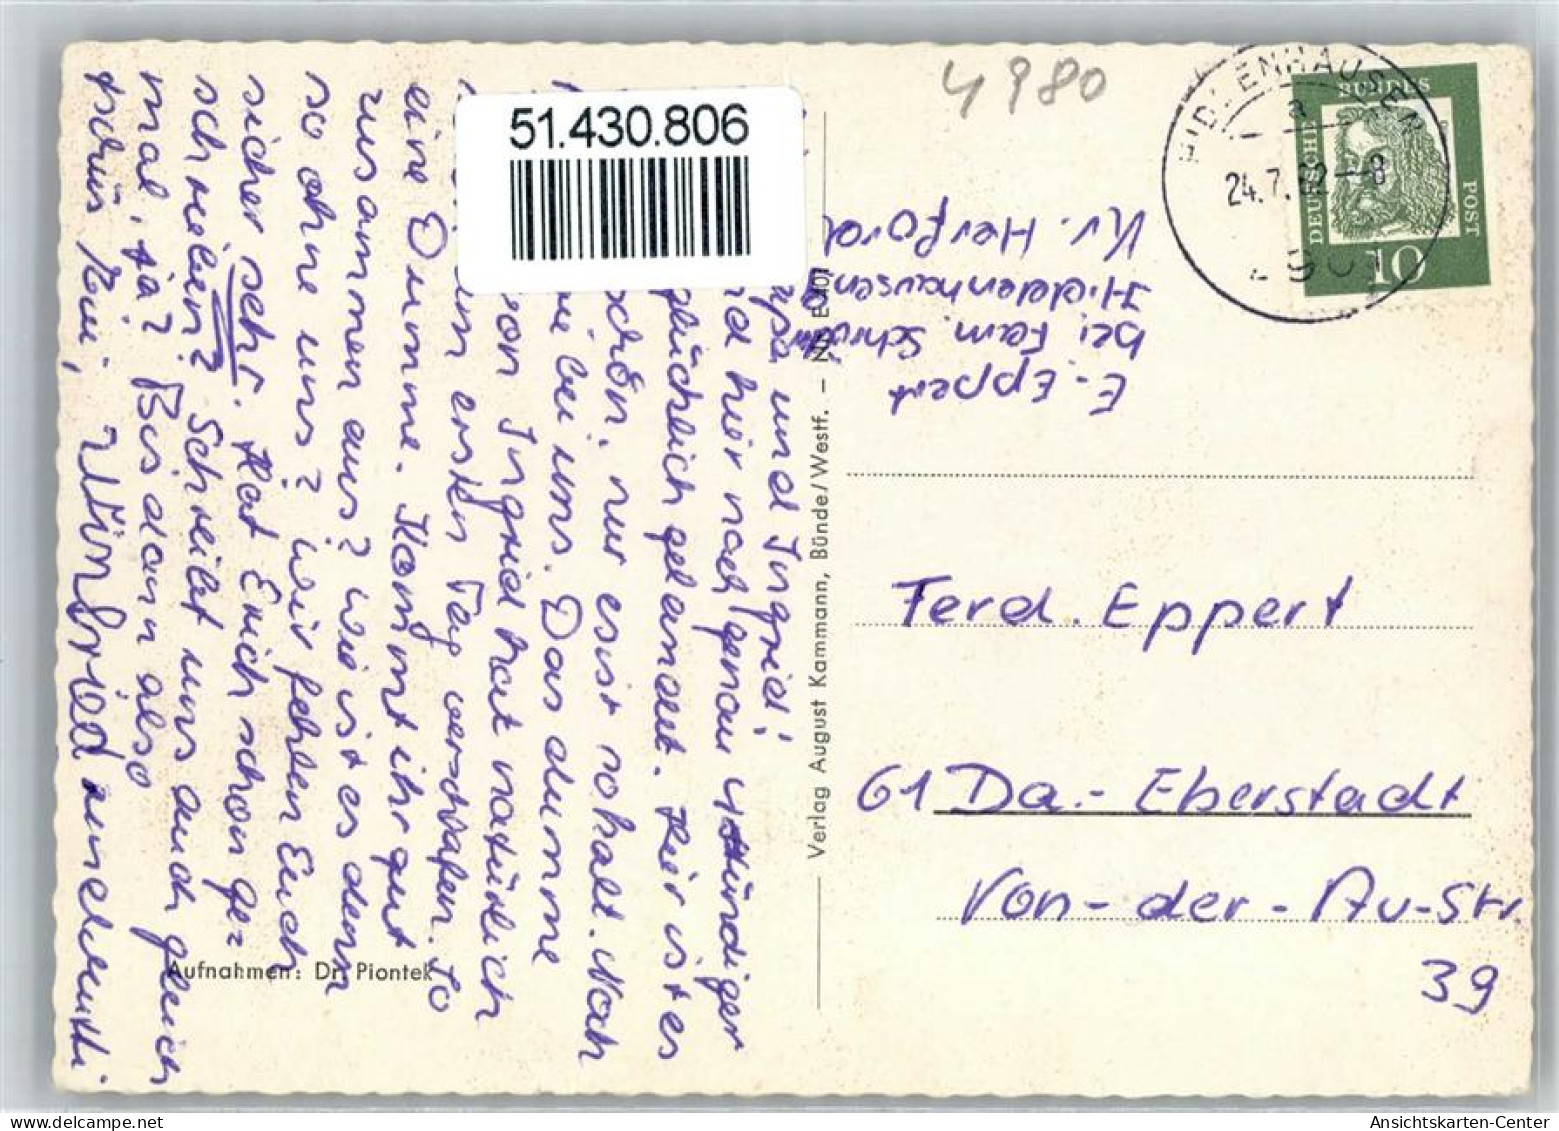 51.430.806
4980
HIDDENHAUSEN
a
24.7.62-8
DEUTSCHE
BUNDES
POST
10
E. Eppert
bei Fam. Schröder
Hiddenhausen
Kr. Herford
Ferd. Eppert
61 Da.- Eberstadt
Von-der-Au-Str.
39
Verlag August Kammann, Bünde/Westf. –
Aufnahmen: Dr. Piontek
und Ingrid!
hier nach genau 4stündiger
glücklich gelandet. Hier ist es
schön, nur es ist so kalt. Noch
bei uns. Das dumme
Ingrid hat natürlich
ersten Tag verschlafen. So
eine Dumme. Kommt ihr gut
zusammen aus? Wie ist es denn
so ohne uns? Wir fehlen Euch
sicher sehr. Hat Erich schon ge=
schrieben? Schreibt uns auch gleich
mal, ja? Bis dann also
tschüs